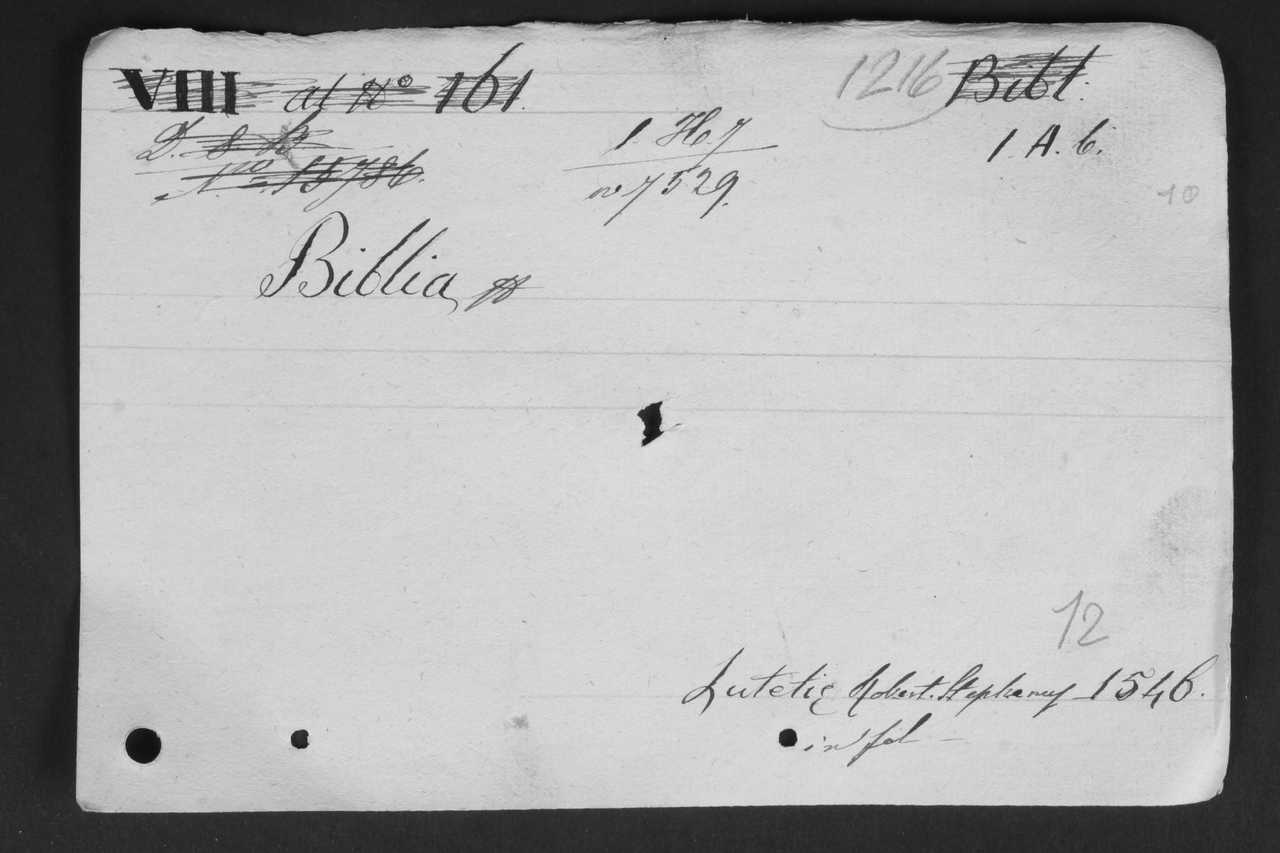 VIII at No 161. 1216 Bibl.
D. 8 1. H. 7 1. A. 6.
No 15786. no 7529. 10
Biblia
12
Lutetiæ Robert. Stephanus 1546.
in fol